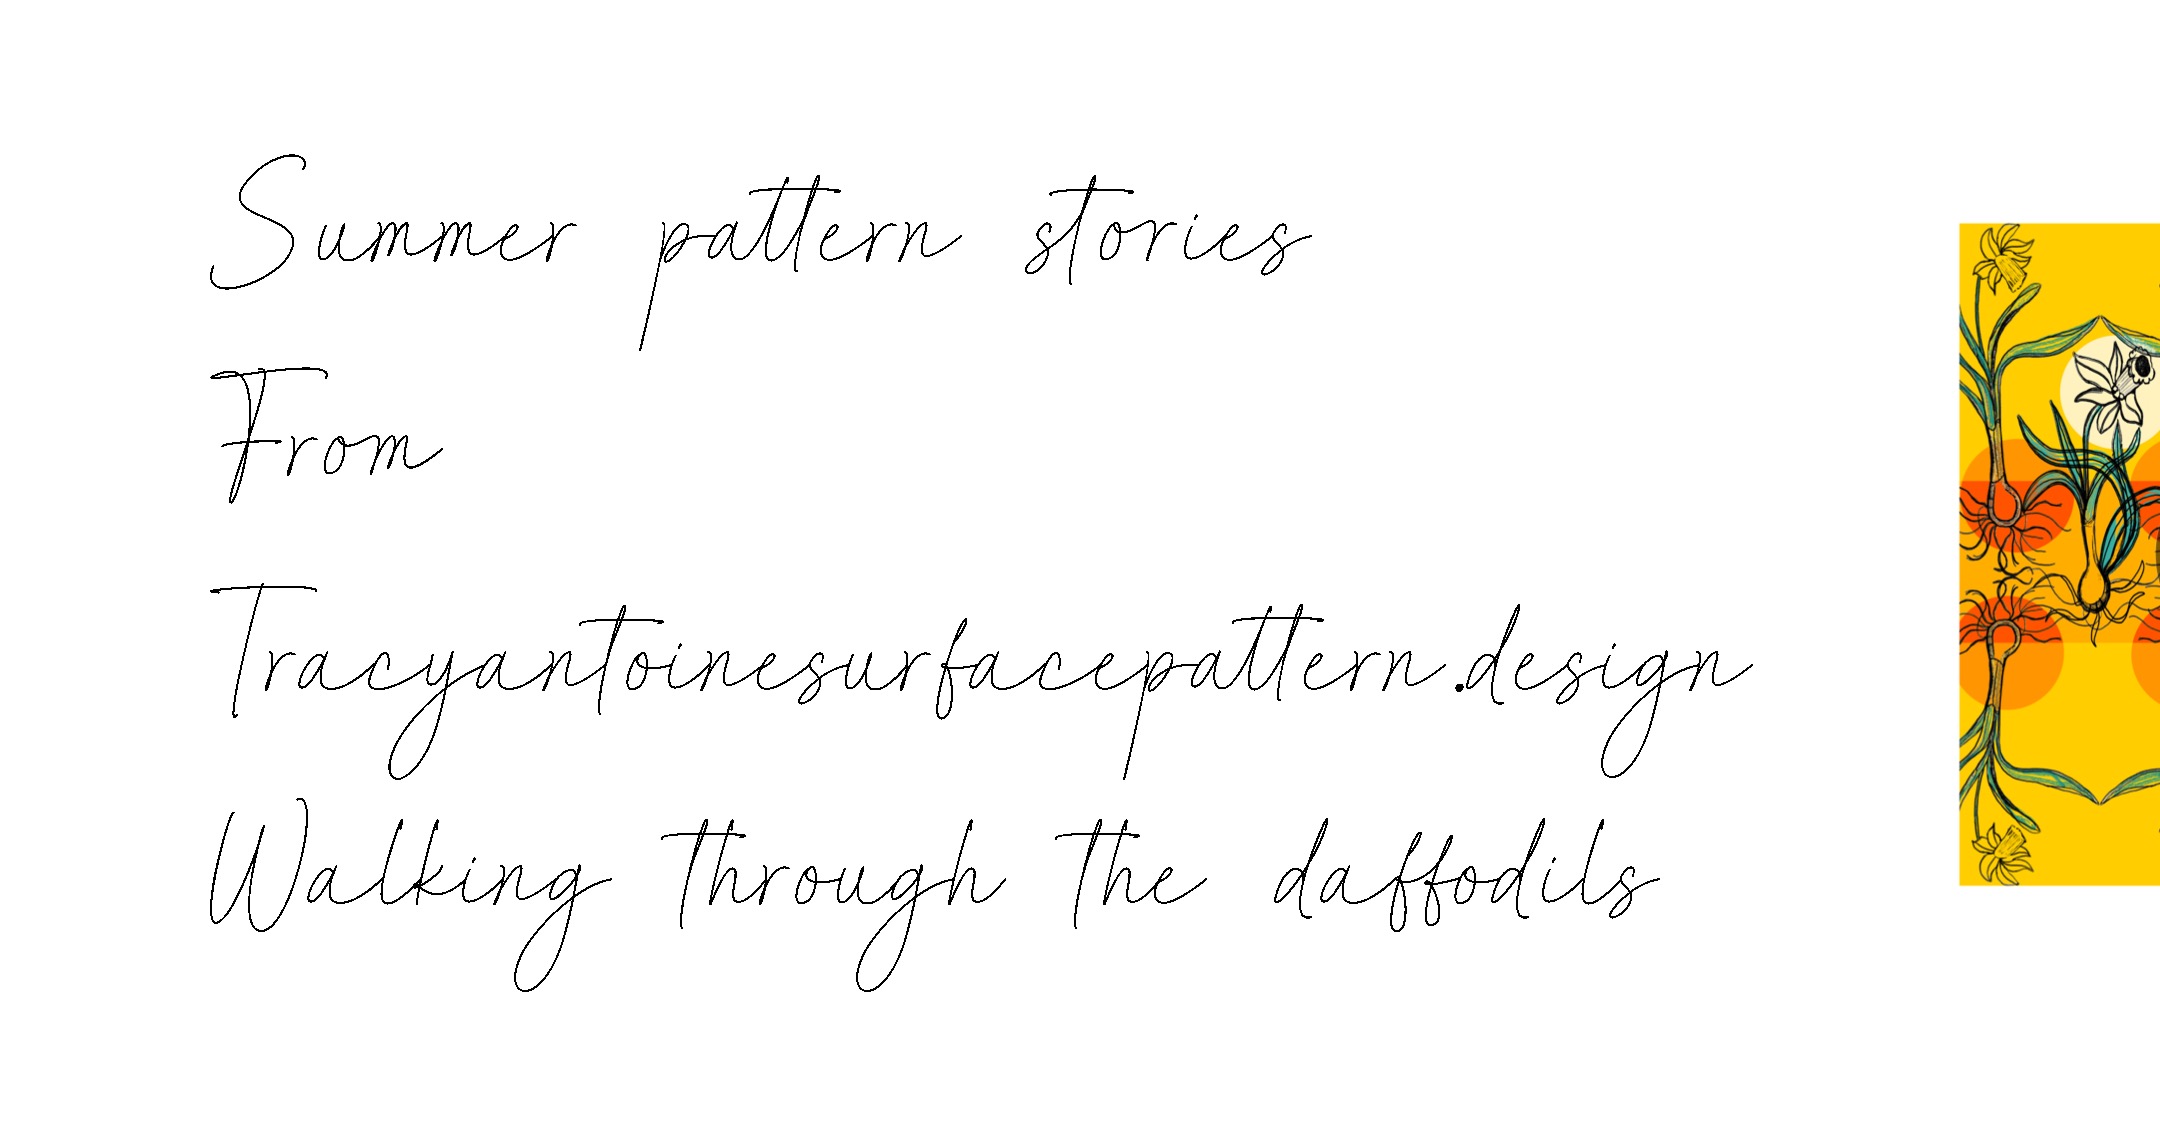 Summer pattern stories
From
Tracyantoinesurfacepattern.design
Walking through the daffodils